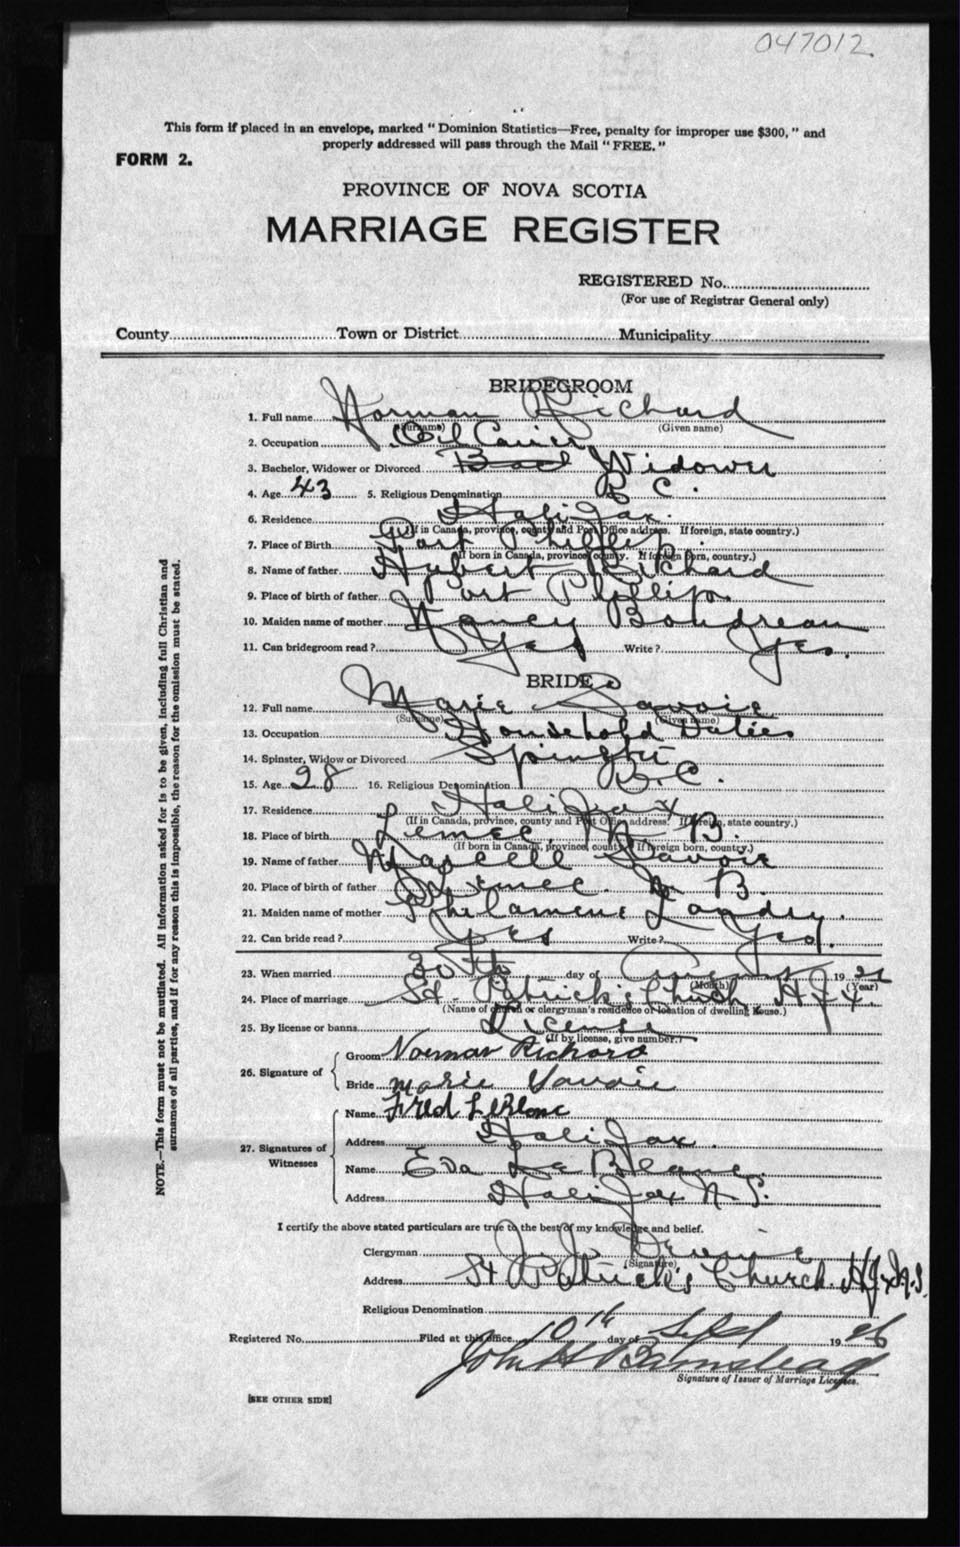 047012.
This form if placed in an envelope, marked "Dominion Statistics—Free, penalty for improper use $300," and
properly addressed will pass through the Mail "FREE."
FORM 2.
PROVINCE OF NOVA SCOTIA
MARRIAGE REGISTER
REGISTERED No.
(For use of Registrar General only)
County Town or District Municipality
BRIDEGROOM
1. Full name Norman Richard
(Surname) (Given name)
2. Occupation
3. Bachelor, Widower or Divorced Bach Widower
4. Age 43 5. Religious Denomination R C.
6. Residence Halifax.
(If in Canada, province, county and Post Office address. If foreign, state country.)
7. Place of Birth Port Phillip.
(If born in Canada, province, county. If foreign born, country.)
8. Name of father Hubert Richard
9. Place of birth of father Port Phillip.
10. Maiden name of mother Nancy Boudreau
11. Can bridegroom read? Yes Write? Yes.
BRIDE
12. Full name Marie Savoie
(Surname) (Given name)
13. Occupation Household Duties
14. Spinster, Widow or Divorced Spinster
15. Age 28 16. Religious Denomination R.C.
17. Residence Halifax
(If in Canada, province, county and Post Office address. If foreign, state country.)
18. Place of birth N. B.
(If born in Canada, province, county. If foreign born, country.)
19. Name of father Savoie
20. Place of birth of father N B.
21. Maiden name of mother Landry.
22. Can bride read? Yes Write? Yes.
23. When married 30th day of August 19
(Month) (Year)
24. Place of marriage St. Patrick's Church Hfx
(Name of church or clergyman's residence or location of dwelling house.)
25. By license or banns License
(If by license, give number.)
26. Signature of
Groom Norman Richard
Bride Marie Savoie
27. Signatures of Witnesses
Name Fred LeBlanc
Address Halifax.
Name Eva Le Blanc.
Address Halifax N.S.
I certify the above stated particulars are true to the best of my knowledge and belief.
Clergyman
(Signature)
Address St Patrick's Church. Hfx N.S.
Religious Denomination
Registered No. Filed at this office 10th day of Sept 19 26
John H Barnstead
Signature of Issuer of Marriage Licenses.
[SEE OTHER SIDE]
NOTE.—This form must not be mutilated. All information asked for is to be given, including full Christian and
surnames of all parties, and if for any reason this is impossible, the reason for the omission must be stated.